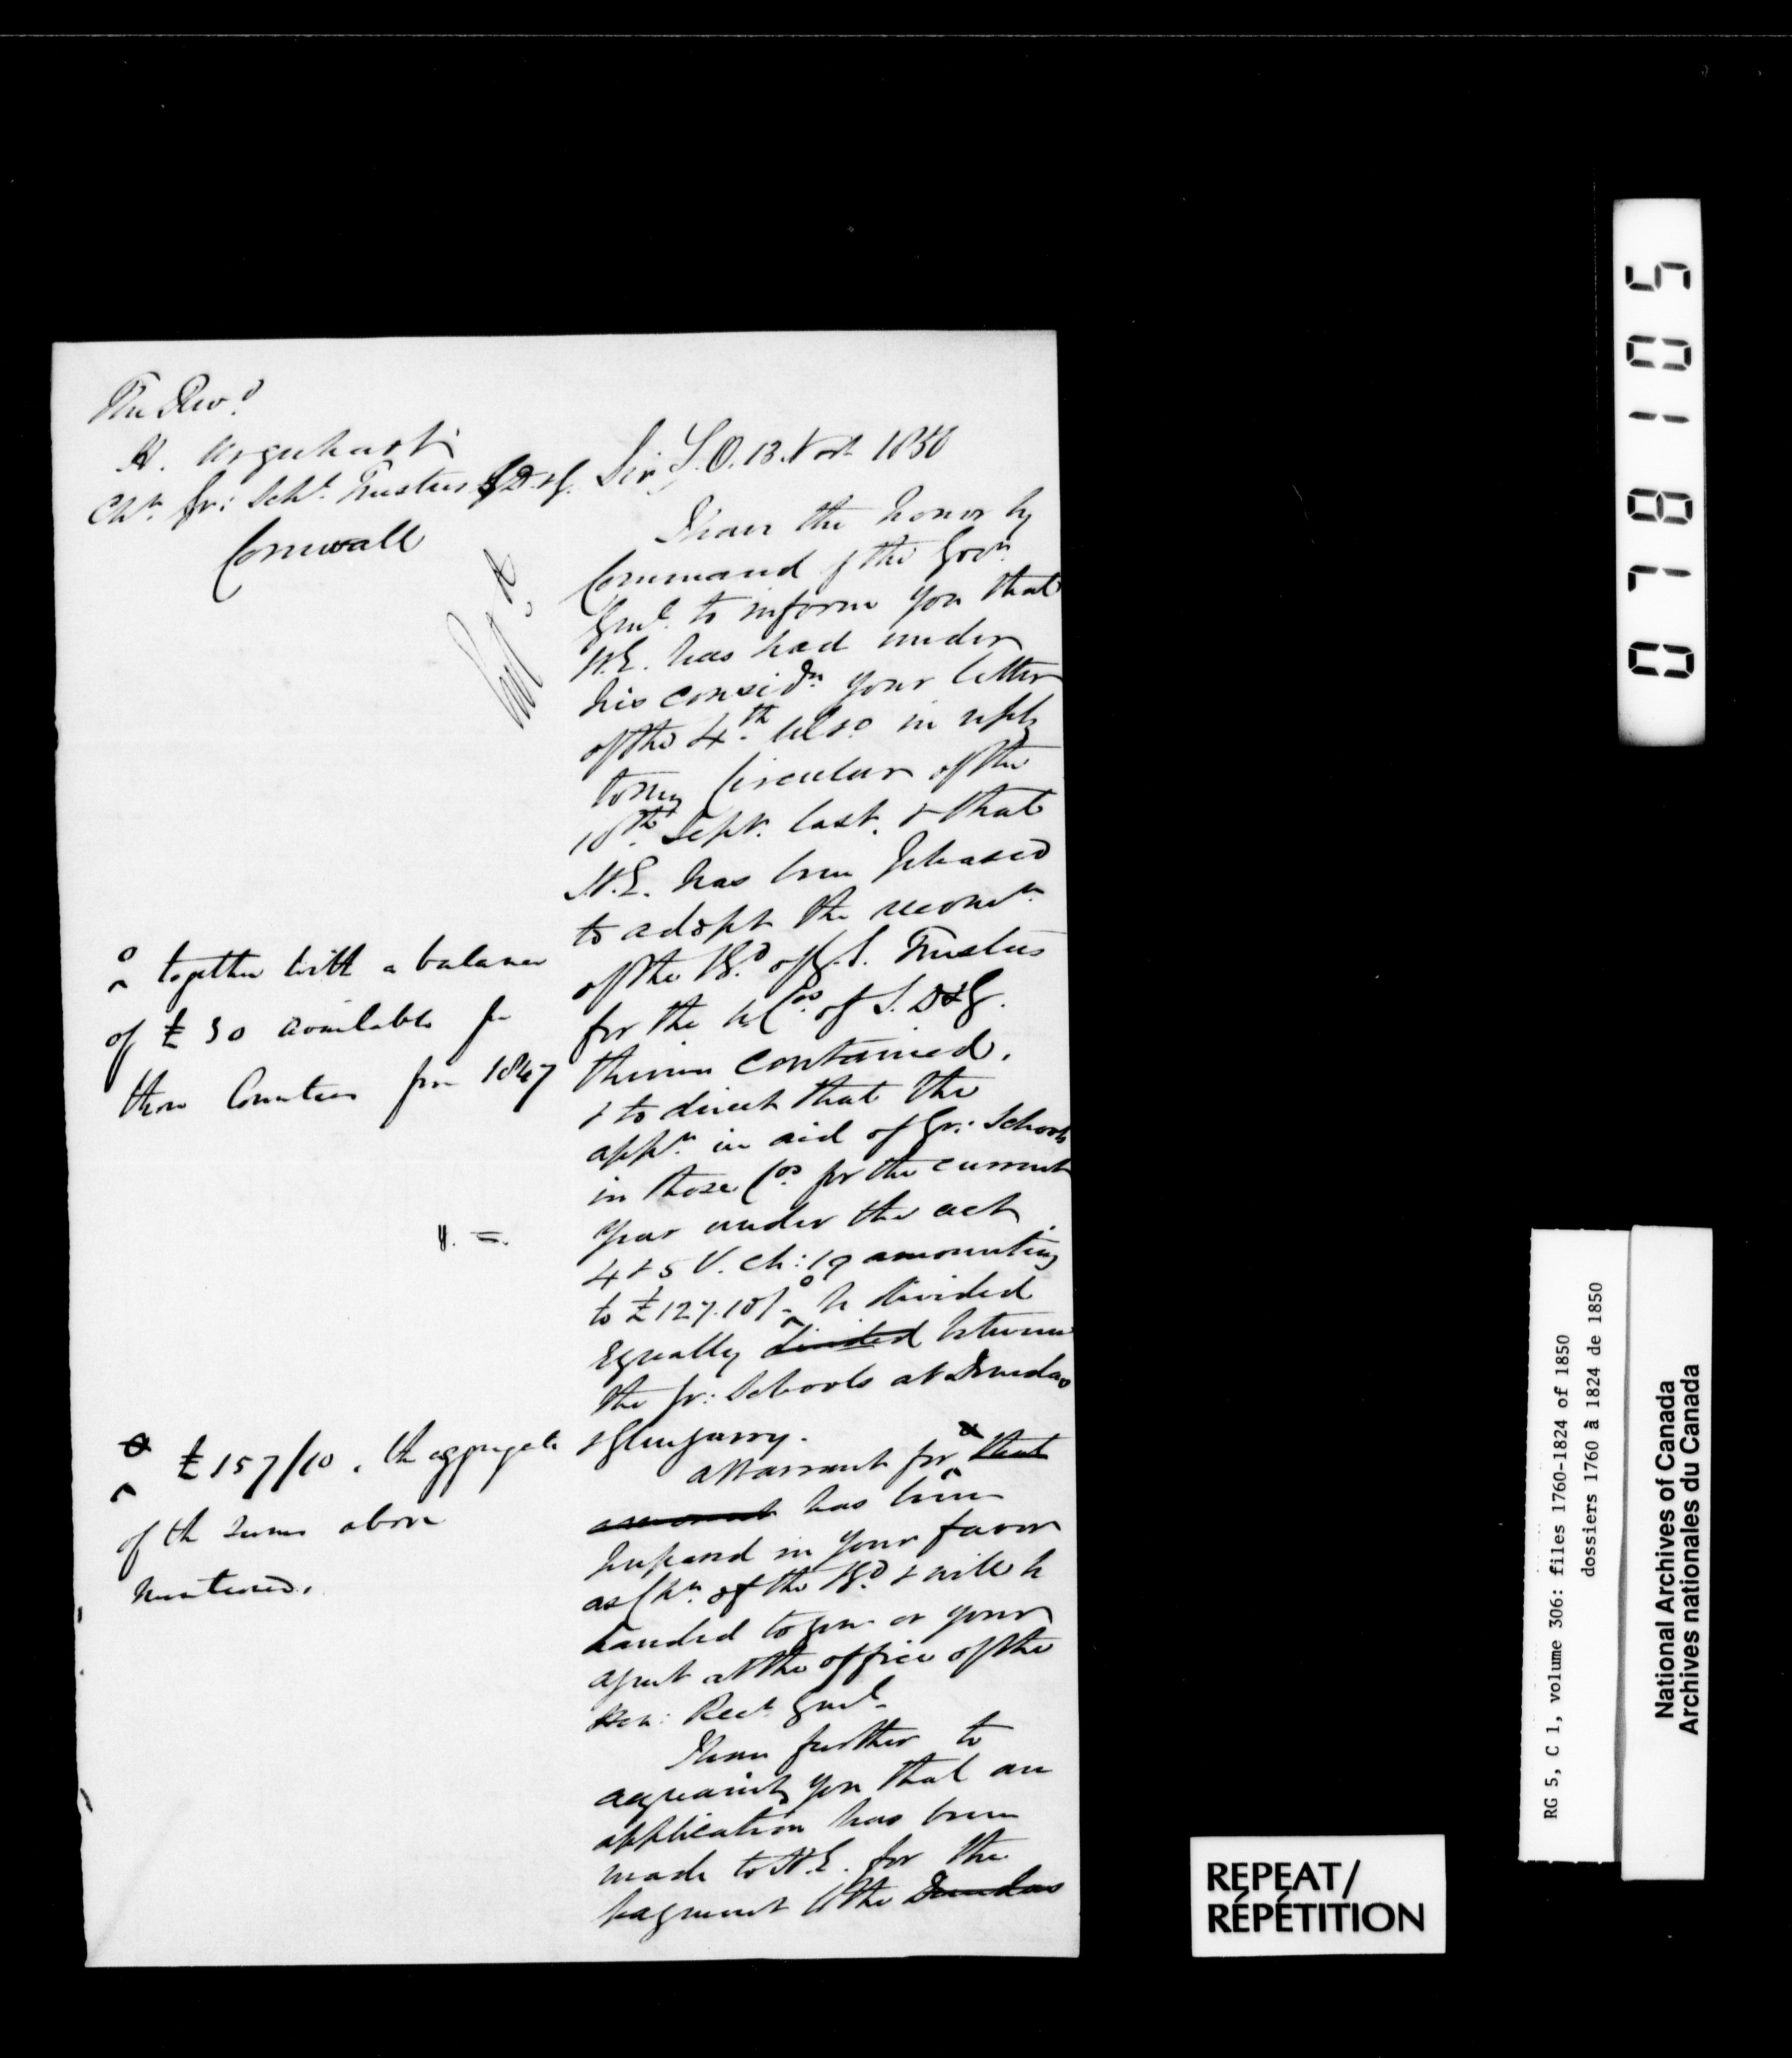 The Revd.
H. Urquhart
Chn. Gr: Schl. Trustees S.D.&G.
Cornwall
S.O. 13 Novr 1850
Sir,
I have the honor by
Command of the Govr.
Genl. to inform you that
H.E. has had under
his considn. your letter
of the 4th. ulto. in reply
to my Circular of the
10th. Septr. last, & that
H.E. has been pleased
to adopt the recomn.
of the Bd. of G.S. Trustees
for the U Cos. of S. D & G.
therein contained.
& to direct that the
appn. in aid of Gr: Schools
in those Cos. for the current
year under the act
4 & 5 V. Ch: 19 amounting
to £127.10/- be divided
Equally divided between
the Gr: Schools at Dundas
& Glengarry.
o together with a balance
of £30 available for
those Counties from 1847
A Warrant for that
amount has been
prepared in your favor
as Chn. of the Bd. & will be
handed to you or your
agent at the office of the
Hon: Recr. Genl.
£157/10. the aggregate
of the sums above
mentioned.
I have further to
acquaint you that an
application has been
made to H.E. for the
payment to the Dundas
0781105
RG 5, C 1, volume 306: files 1760-1824 of 1850
dossiers 1760 à 1824 de 1850
National Archives of Canada
Archives nationales du Canada
REPEAT/
RÉPÉTITION